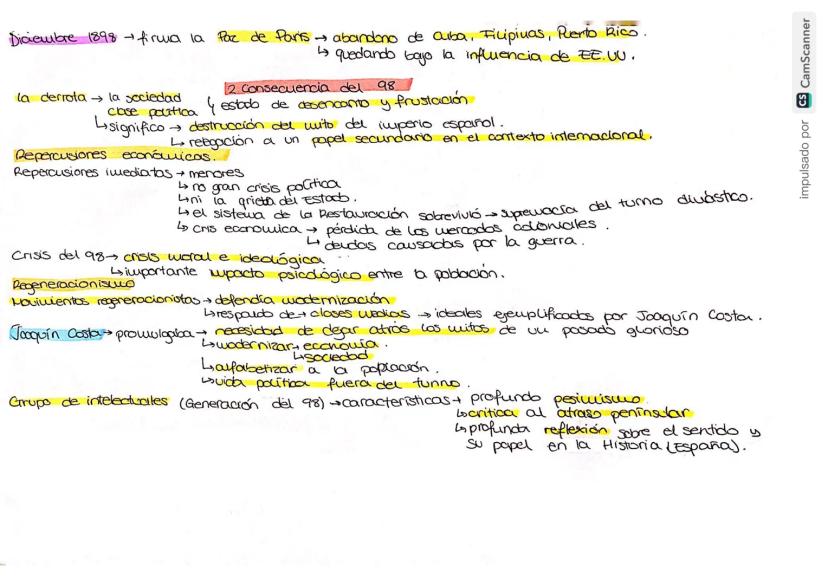 Diciembre 1898 → firma la Paz de París → abandono de Cuba, Filipinas, Puerto Rico.
↳ quedando bajo la influencia de EE.UU.
2. Consecuencia del 98
La derrota → la sociedad
clase política y estado de desencanto y frustación
↳ significo → destrucción del mito del imperio español.
↳ relegación a un papel secundario en el contexto internacional.
Repercusiones económicas.
Repercusiones imediatas → menores
↳ no gran crisis política
↳ ni la quiebra del Estado.
↳ el sistema de la Restauración sobrevivió → supremacía del turno dinástico.
↳ cris economica → pérdida de los mercados coloniales.
↳ deudas causadas por la guerra.
Crisis del 98 → crisis moral e ideológica
↳ importante impacto psicológico entre la población.
Regeneracionismo
Movimientos regeneracionistas → defendía modernización
↳ respaldo de → clases medias → ideales ejemplificados por Joaquín Costa.
Joaquín Costa → promulgaba → necesidad de dejar atrás los mitos de un pasado glorioso
↳ modernizar → economía.
↳ sociedad
↳ alfabetizar a la población.
↳ vida política fuera del turno.
Grupo de intelectuales (Generación del 98) → características → profundo pesimismo.
↳ critica al atraso peninsular
↳ profunda reflexión sobre el sentido y
su papel en la Historia (España).
impulsado por CS CamScanner